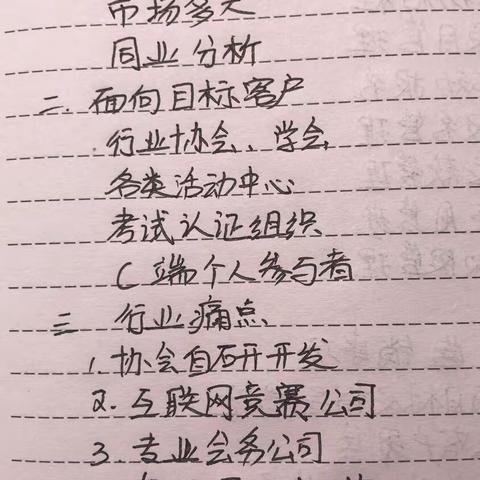 市场多大
同业分析
二. 面向目标客户
行业协会、学会
各类活动中心
考试认证组织
C端个人参与者
三 行业痛点
1. 协会自研开发
2. 互联网竞赛公司
3. 专业会务公司